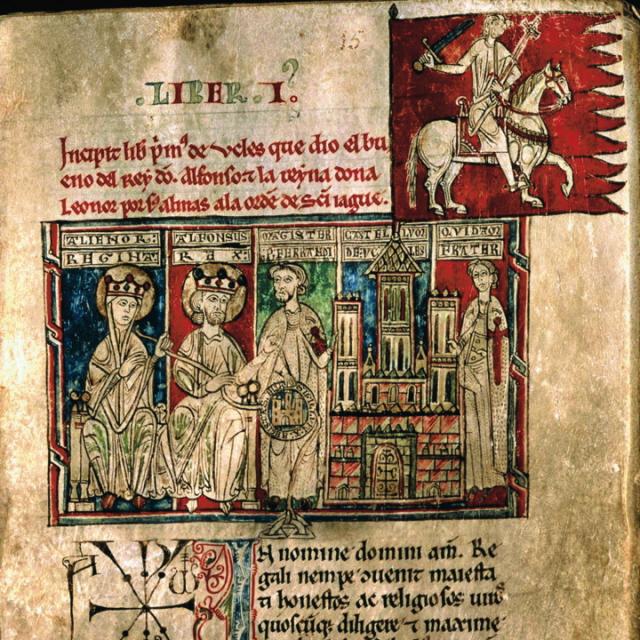 15
.LIBER. I.
Incipit lib p̃m̃ de Veles que dio el bu
eno del Rey dõ. Alfonso ⁊ la reyna dona
Leonor por sˢ almas a la ordẽ de Sc̃i iague.
ALIENOR:
REGINA
ALFONSUS
REX
MAGISTER
CASTELLVM
QVIDAM
FRATER
A ω
IN nomine domini am̃. Re
gali nempe ↄuenit maiesta
ti honestos ac religiosos
quoscũq; diligere ⁊ maxime